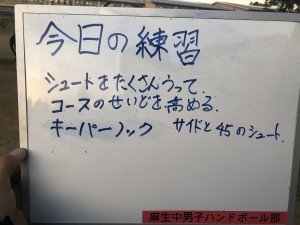 今日の練習
シュートをたくさんうって、
コースのせいどを高める。
キーパーノック サイドと45のシュート
麻生中男子ハンドボール部